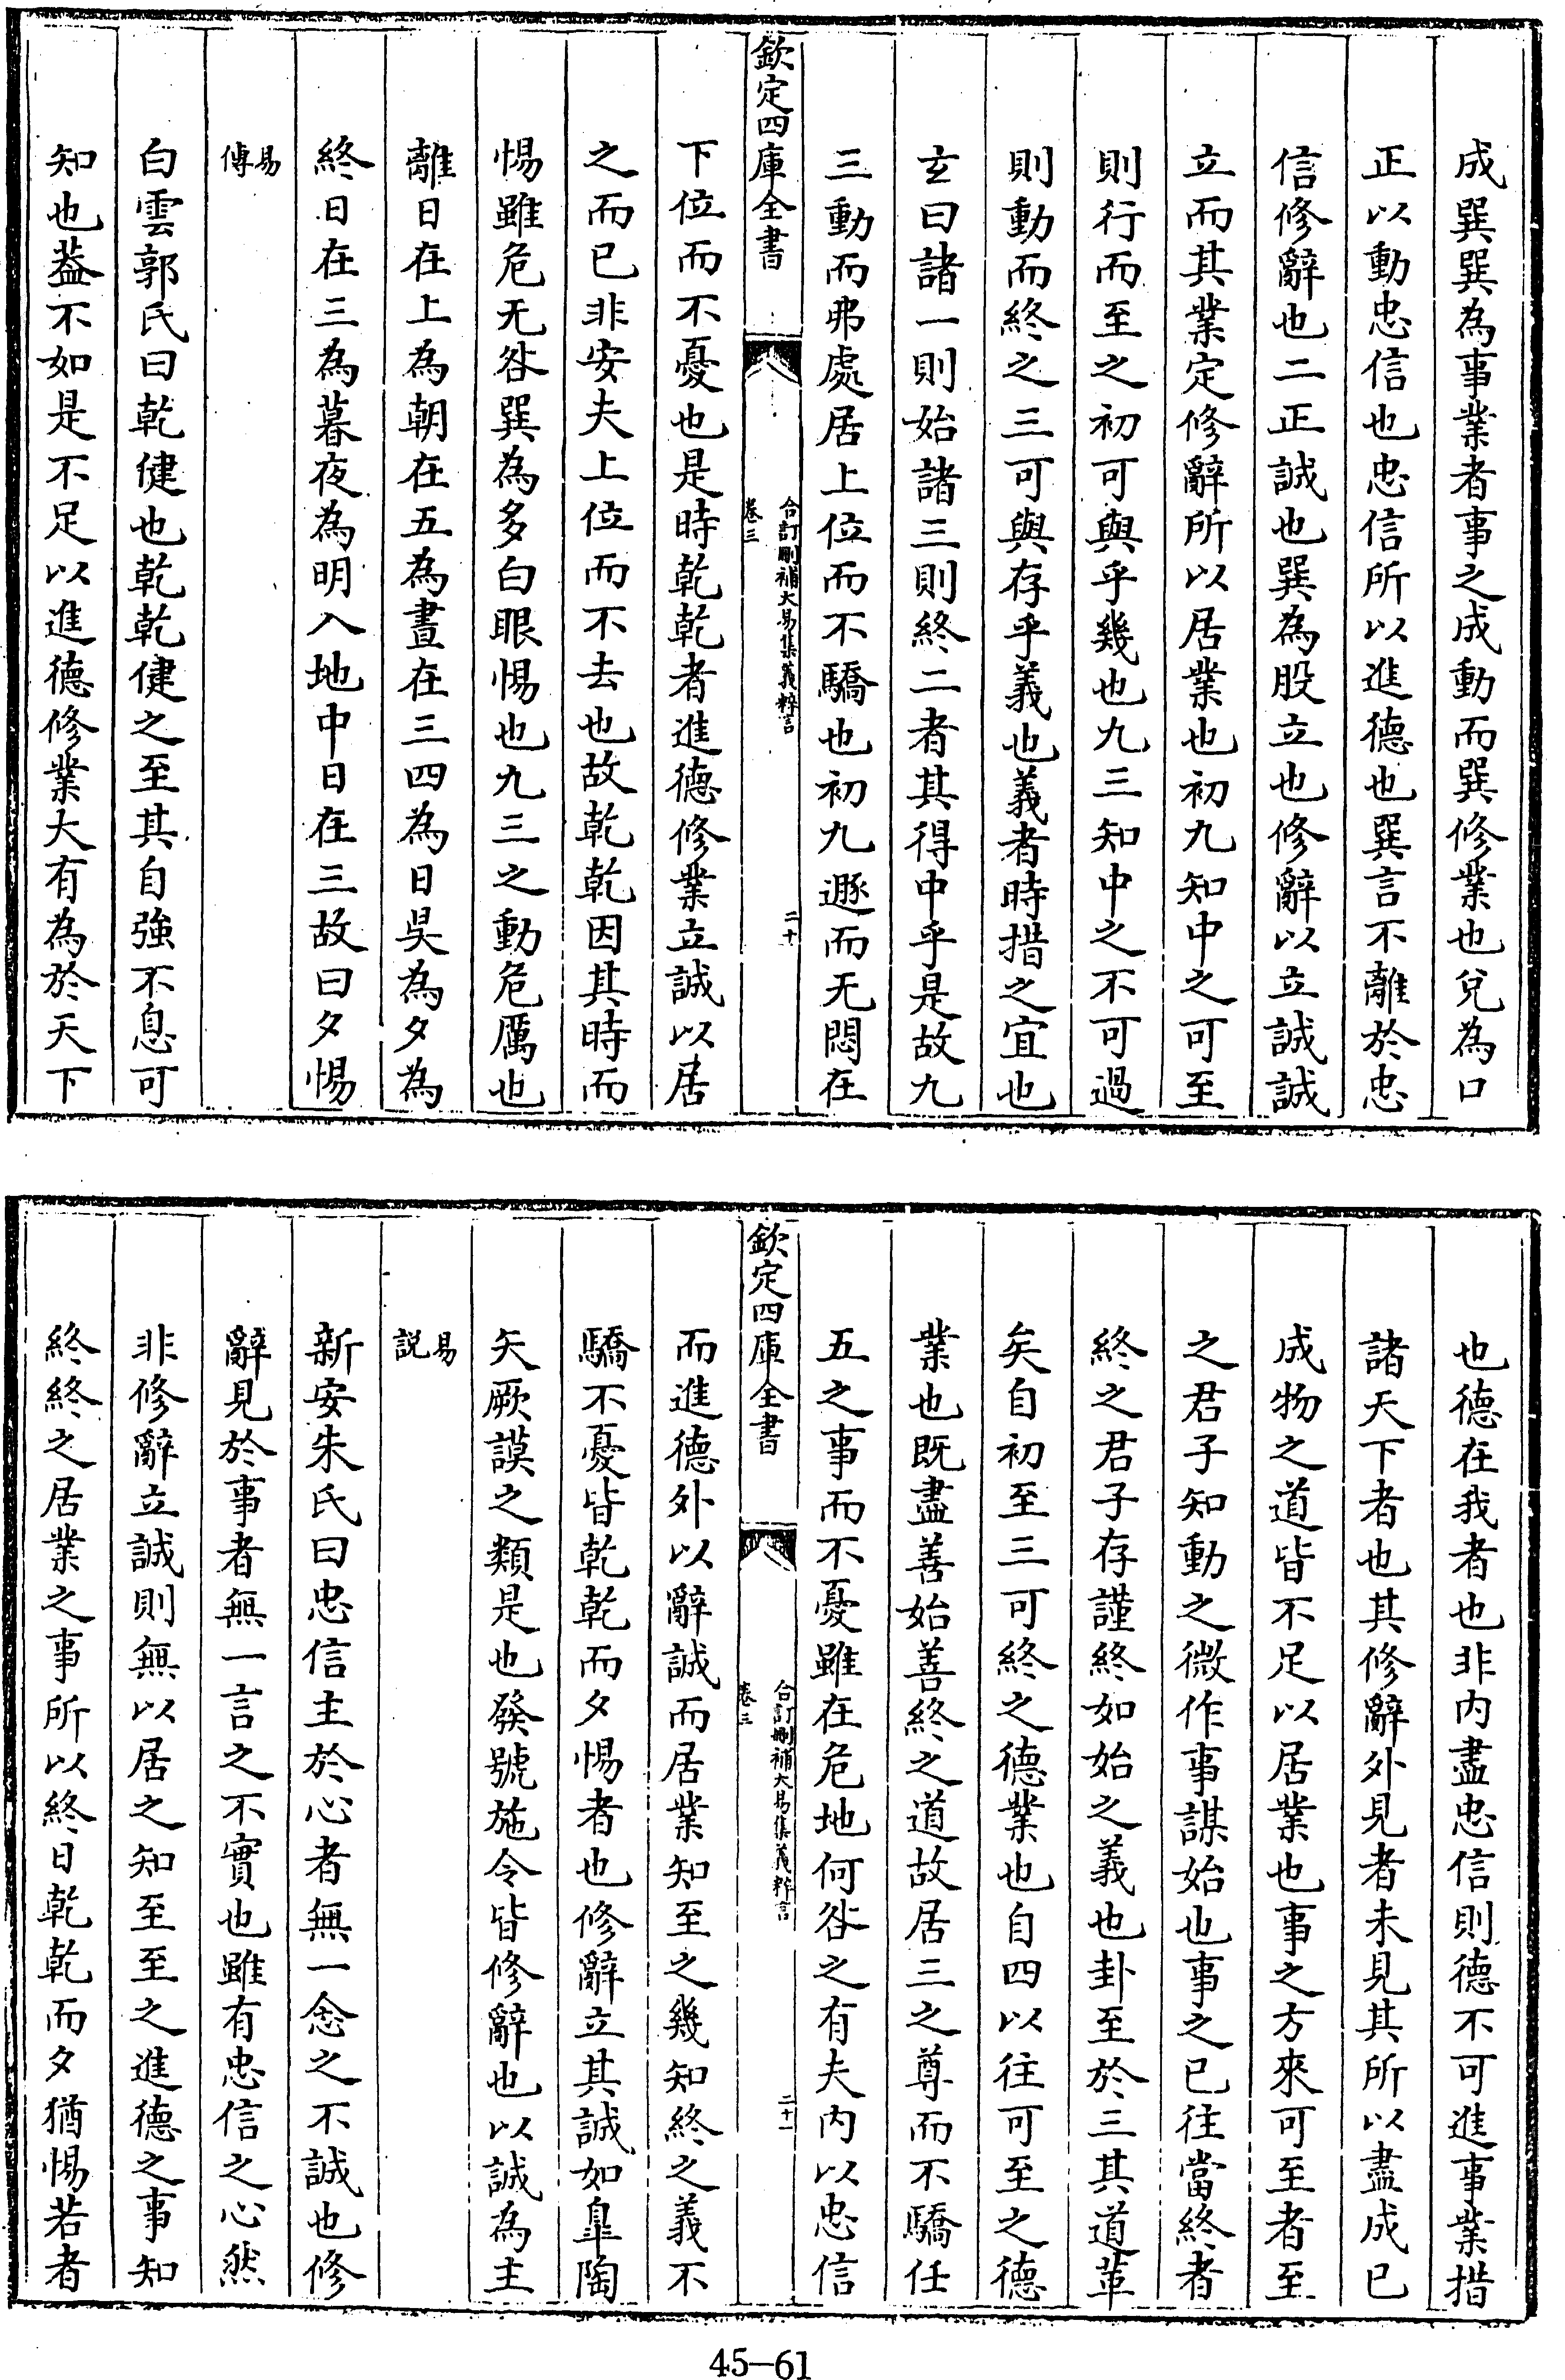 成巽巽為事業者事之成動而巽修業也兌為口
正以動忠信也忠信所以進德也巽言不離於忠
信修辭也二正誠也巽為股立也修辭以立誠誠
立而其業定修辭所以居業也初九知中之可至
則行而至之初可與乎幾也九三知中之不可過
則動而終之三可與存乎義也義者時措之宜也
玄曰諸一則始諸三則終二者其得中乎是故九
三動而弗處居上位而不驕也初九遯而无悶在
欽定四庫全書
合訂刪補大易集義粹言
卷三
二十
下位而不憂也是時乾乾者進德修業立誠以居
之而已非安夫上位而不去也故乾乾因其時而
惕雖危无咎巽為多白眼惕也九三之動危厲也
離日在上為朝在五為晝在三四為日昃為夕為
終日在三為暮夜為明入地中日在三故曰夕惕
易傳
白雲郭氏曰乾健也乾乾健之至其自強不息可
知也葢不如是不足以進德修業大有為於天下
也德在我者也非内盡忠信則德不可進事業措
諸天下者也其修辭外見者未見其所以盡成已
成物之道皆不足以居業也事之方來可至者至
之君子知動之微作事謀始也事之已往當終者
終之君子存謹終如始之義也卦至於三其道革
矣自初至三可終之德業也自四以往可至之德
業也既盡善始善終之道故居三之尊而不驕任
五之事而不憂雖在危地何咎之有夫内以忠信
欽定四庫全書
合訂刪補大易集義粹言
卷三
二十一
而進德外以辭誠而居業知至之幾知終之義不
驕不憂皆乾乾而夕惕者也修辭立其誠如臯陶
矢厥謨之類是也發號施令皆修辭也以誠為主
易説
新安朱氏曰忠信主於心者無一念之不誠也修
辭見於事者無一言之不實也雖有忠信之心然
非修辭立誠則無以居之知至至之進德之事知
終終之居業之事所以終日乾乾而夕猶惕若者
45-61